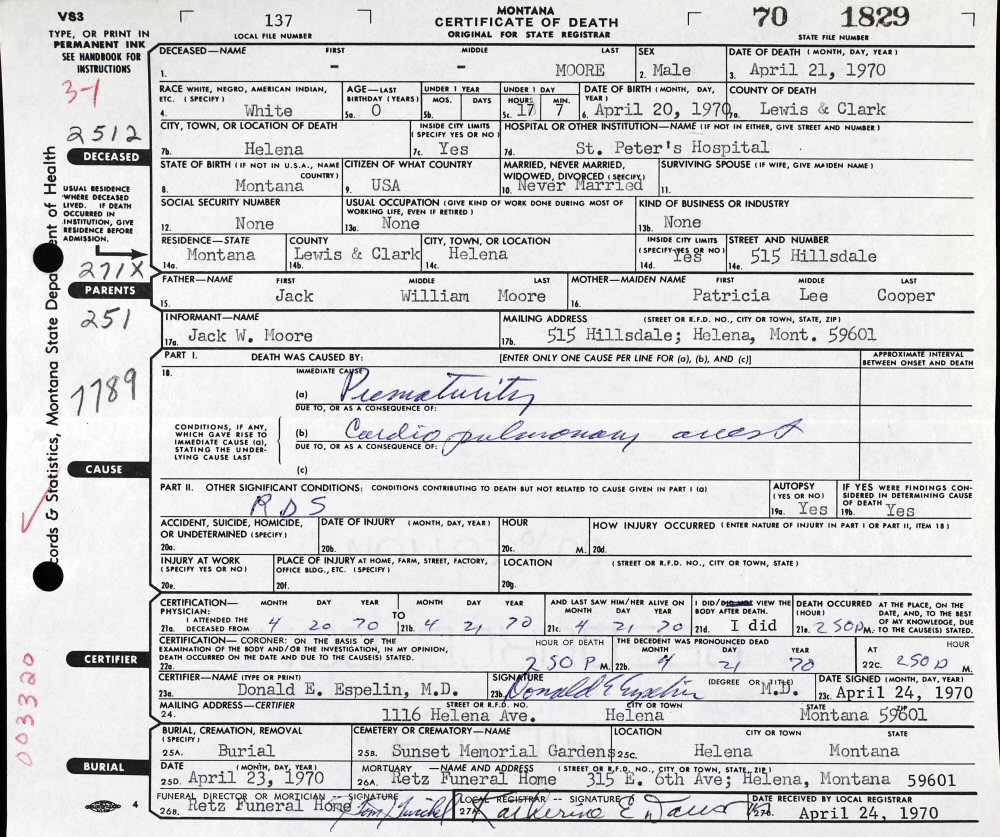 VS3
TYPE, OR PRINT IN
PERMANENT INK
SEE HANDBOOK FOR
INSTRUCTIONS
137
LOCAL FILE NUMBER
MONTANA
CERTIFICATE OF DEATH
ORIGINAL FOR STATE REGISTRAR
70 1829
STATE FILE NUMBER
3-1
2512
DECEASED
USUAL RESIDENCE
WHERE DECEASED
LIVED. IF DEATH
OCCURRED IN
INSTITUTION, GIVE
RESIDENCE BEFORE
ADMISSION.
271X
PARENTS
251
7789
CAUSE
cords & Statistics, Montana State Depa ent of Health
CERTIFIER
003320
BURIAL
4
DECEASED—NAME FIRST MIDDLE LAST
1. - - MOORE
SEX
2. Male
DATE OF DEATH (MONTH, DAY, YEAR)
3. April 21, 1970
RACE WHITE, NEGRO, AMERICAN INDIAN,
ETC. (SPECIFY)
4. White
AGE—LAST
BIRTHDAY (YEARS)
5a. 0
UNDER 1 YEAR
MOS. DAYS
5b.
UNDER 1 DAY
HOURS MIN.
5c. 17 7
DATE OF BIRTH (MONTH, DAY,
YEAR)
6. April 20, 1970
COUNTY OF DEATH
7a. Lewis & Clark
CITY, TOWN, OR LOCATION OF DEATH
7b. Helena
INSIDE CITY LIMITS
(SPECIFY YES OR NO)
7c. Yes
HOSPITAL OR OTHER INSTITUTION—NAME (IF NOT IN EITHER, GIVE STREET AND NUMBER)
7d. St. Peter's Hospital
STATE OF BIRTH (IF NOT IN U.S.A., NAME
COUNTRY)
8. Montana
CITIZEN OF WHAT COUNTRY
9. USA
MARRIED, NEVER MARRIED,
WIDOWED, DIVORCED (SPECIFY)
10. Never Married
SURVIVING SPOUSE (IF WIFE, GIVE MAIDEN NAME)
11.
SOCIAL SECURITY NUMBER
12. None
USUAL OCCUPATION (GIVE KIND OF WORK DONE DURING MOST OF
WORKING LIFE, EVEN IF RETIRED)
13a. None
KIND OF BUSINESS OR INDUSTRY
13b. None
RESIDENCE—STATE
14a. Montana
COUNTY
14b. Lewis & Clark
CITY, TOWN, OR LOCATION
14c. Helena
INSIDE CITY LIMITS
(SPECIFY YES OR NO)
14d. Yes
STREET AND NUMBER
14e. 515 Hillsdale
FATHER—NAME FIRST MIDDLE LAST
15. Jack William Moore
MOTHER—MAIDEN NAME FIRST MIDDLE LAST
16. Patricia Lee Cooper
INFORMANT—NAME
17a. Jack W. Moore
MAILING ADDRESS (STREET OR R.F.D. NO., CITY OR TOWN, STATE, ZIP)
17b. 515 Hillsdale; Helena, Mont. 59601
PART I. DEATH WAS CAUSED BY: [ENTER ONLY ONE CAUSE PER LINE FOR (a), (b), AND (c)]
APPROXIMATE INTERVAL
BETWEEN ONSET AND DEATH
18. IMMEDIATE CAUSE
(a) Prematurity
DUE TO, OR AS A CONSEQUENCE OF:
CONDITIONS, IF ANY,
WHICH GAVE RISE TO
IMMEDIATE CAUSE (a),
STATING THE UNDER-
LYING CAUSE LAST
(b) Cardio pulmonary arrest
DUE TO, OR AS A CONSEQUENCE OF:
(c)
PART II. OTHER SIGNIFICANT CONDITIONS: CONDITIONS CONTRIBUTING TO DEATH BUT NOT RELATED TO CAUSE GIVEN IN PART I (a)
RDS
AUTOPSY
(YES OR NO)
19a. Yes
IF YES WERE FINDINGS CON-
SIDERED IN DETERMINING CAUSE
OF DEATH
19b. Yes
ACCIDENT, SUICIDE, HOMICIDE,
OR UNDETERMINED (SPECIFY)
20a.
DATE OF INJURY (MONTH, DAY, YEAR)
20b.
HOUR
20c. M.
HOW INJURY OCCURRED (ENTER NATURE OF INJURY IN PART I OR PART II, ITEM 18)
20d.
INJURY AT WORK
(SPECIFY YES OR NO)
20e.
PLACE OF INJURY AT HOME, FARM, STREET, FACTORY,
OFFICE BLDG., ETC. (SPECIFY)
20f.
LOCATION (STREET OR R.F.D. NO., CITY OR TOWN, STATE)
20g.
CERTIFICATION— MONTH DAY YEAR MONTH DAY YEAR
PHYSICIAN:
I ATTENDED THE
DECEASED FROM
21a. 4 20 70 TO 21b. 4 21 70
AND LAST SAW HIM/HER ALIVE ON
MONTH DAY YEAR
21c. 4 21 70
I DID/DID NOT VIEW THE
BODY AFTER DEATH.
21d. I did
DEATH OCCURRED AT THE PLACE, ON THE
(HOUR) DATE, AND, TO THE BEST
OF MY KNOWLEDGE, DUE
21e. 2 50P M. TO THE CAUSE(S) STATED.
CERTIFICATION— CORONER: ON THE BASIS OF THE
EXAMINATION OF THE BODY AND/OR THE INVESTIGATION, IN MY OPINION,
DEATH OCCURRED ON THE DATE AND DUE TO THE CAUSE(S) STATED.
22a.
HOUR OF DEATH
2 50 P M.
THE DECEDENT WAS PRONOUNCED DEAD
MONTH DAY YEAR
22b. 4 21 70
AT HOUR
22c. 250 p M.
CERTIFIER—NAME (TYPE OR PRINT)
23a. Donald E. Espelin, M.D.
SIGNATURE (DEGREE OR TITLE)
23b. Donald E Espelin M.D.
DATE SIGNED (MONTH, DAY, YEAR)
23c. April 24, 1970
MAILING ADDRESS—CERTIFIER STREET OR R.F.D. NO. CITY OR TOWN STATE ZIP
24. 1116 Helena Ave. Helena Montana 59601
BURIAL, CREMATION, REMOVAL
(SPECIFY)
25A. Burial
CEMETERY OR CREMATORY—NAME
25B. Sunset Memorial Gardens
LOCATION CITY OR TOWN STATE
25C. Helena Montana
DATE (MONTH, DAY, YEAR)
25D. April 23, 1970
MORTUARY —NAME AND ADDRESS (STREET OR R.F.D. NO., CITY OR TOWN, STATE, ZIP)
26A. Retz Funeral Home 315 E. 6th Ave; Helena, Montana 59601
FUNERAL DIRECTOR OR MORTICIAN — SIGNATURE
26B. Retz Funeral Home
LOCAL REGISTRAR -- SIGNATURE
27A. Katherine E
DATE RECEIVED BY LOCAL REGISTRAR
27B. April 24, 1970